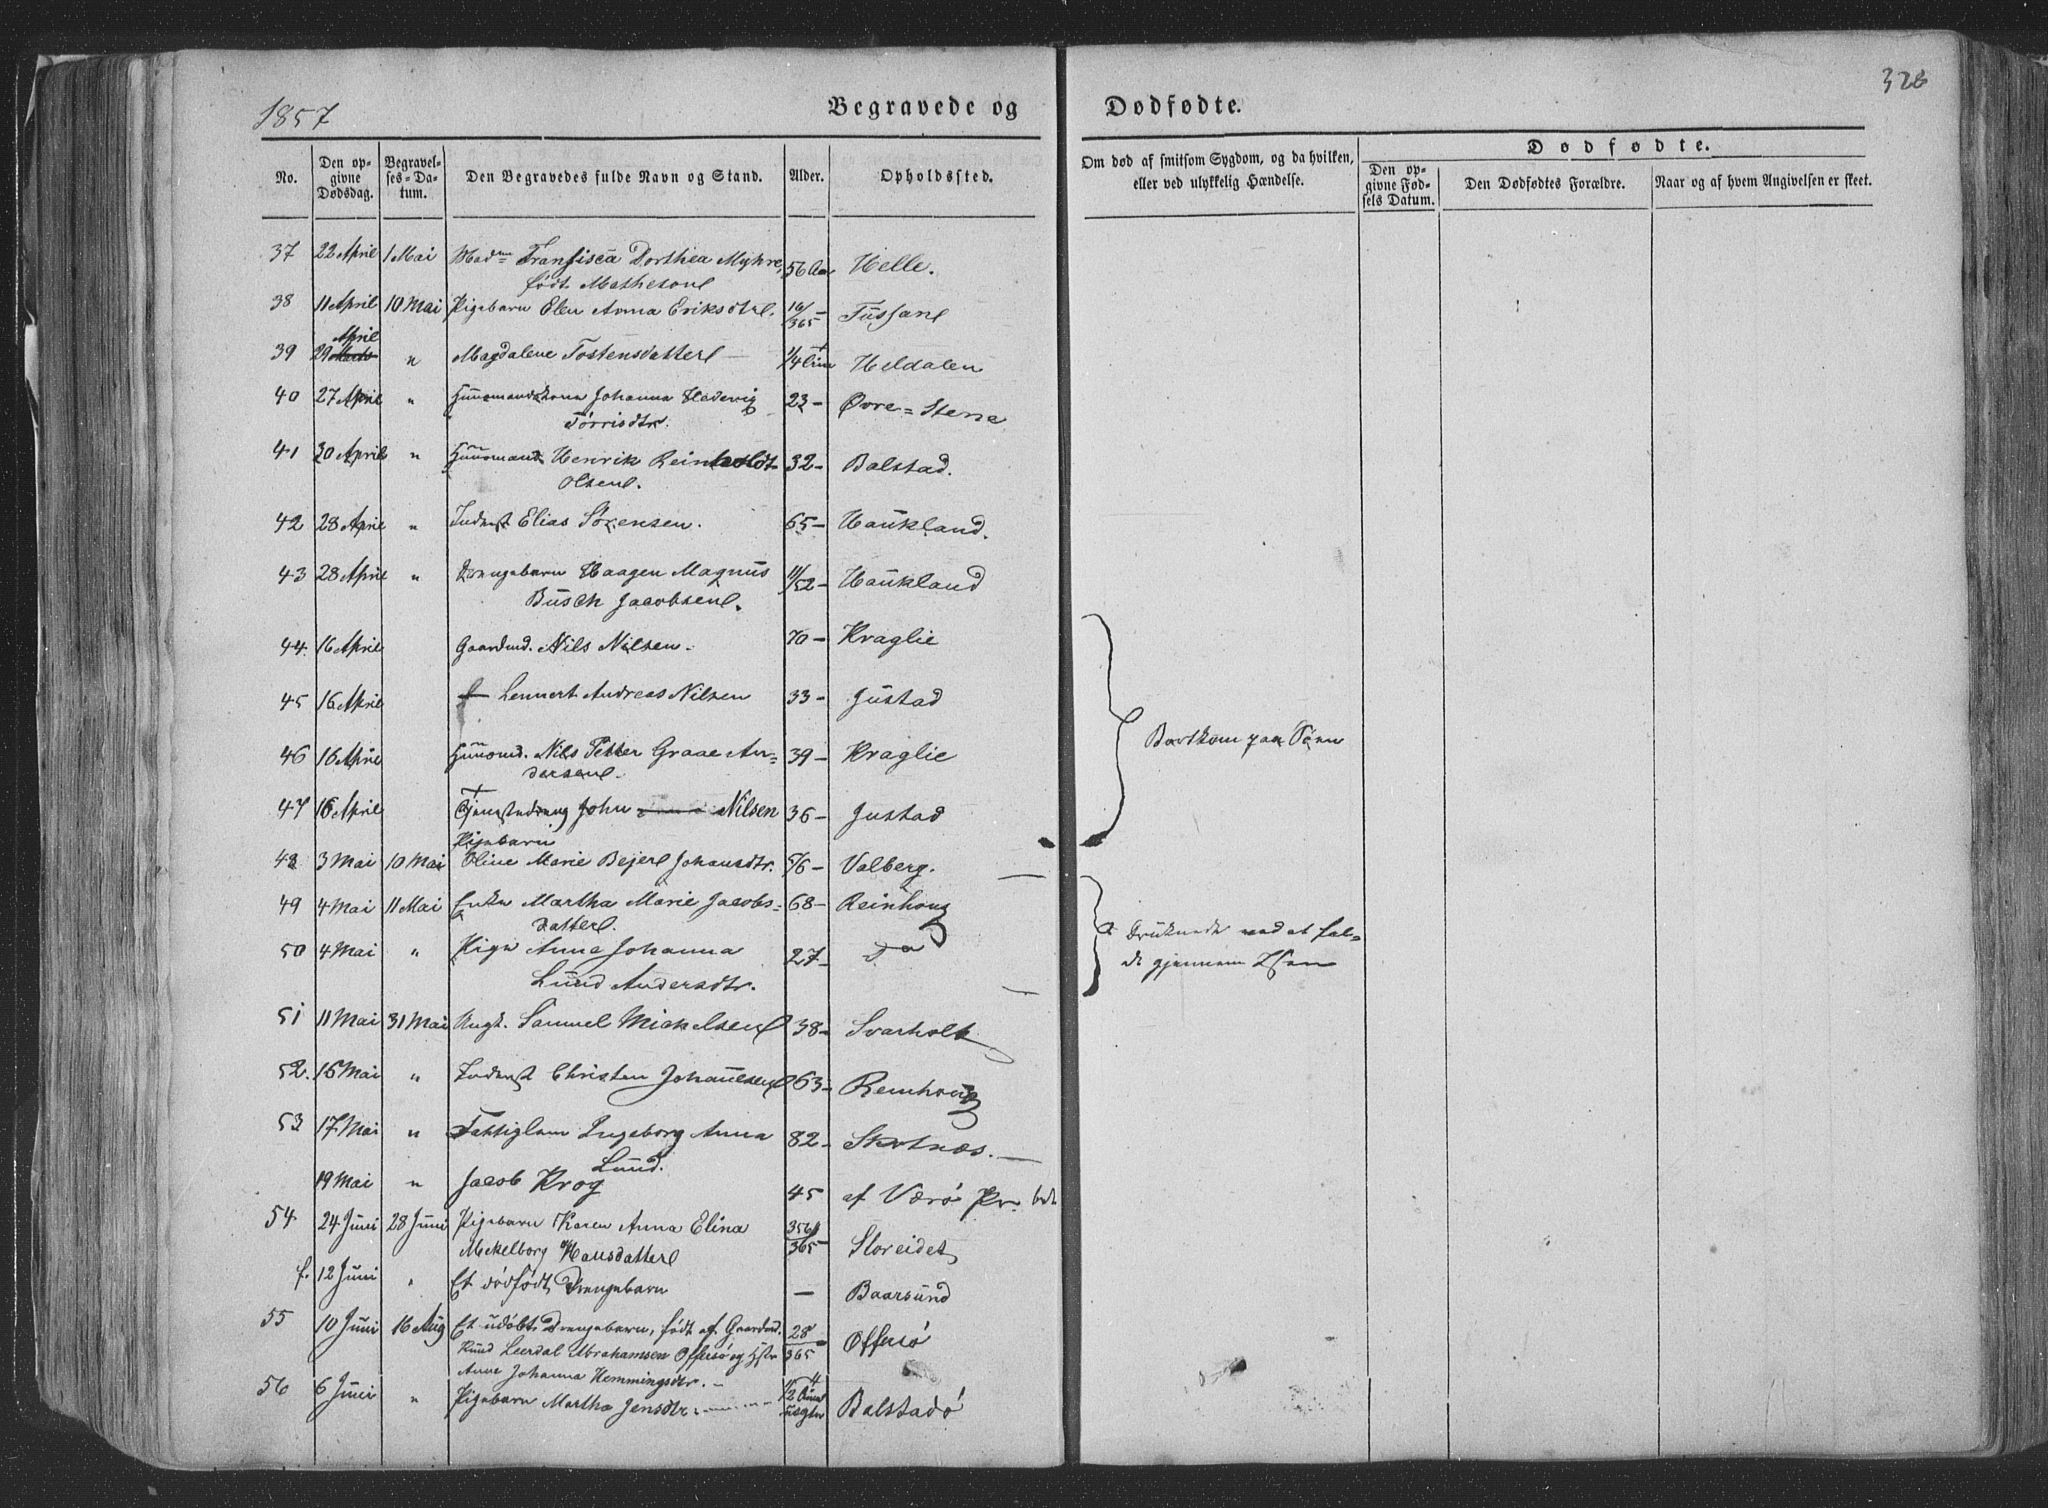 1857
Begravede og Dødfødte.
328
No.
Den opgivne Dødsdag.
Begravelses-Datum.
Den Begravedes fulde Navn og Stand.
Alder.
Opholdssted.
Om død af smitsom Sygdom, og da hvilken, eller ved ulykkelig Hændelse.
Dødfødte.
Den opgivne Fødsels Datum.
Den Dødfødtes Forældre.
Naar og af hvem Angivelsen er skeet.
37 22 April 1 Mai Madme Fransisca Dorthea Myhre, 56 Aar Helle.
født Mathesen
38 11 April 10 Mai Pigebarn Elen Anna Eriksdtr. 10/365 - Tussan
April
39 29 Marts " Magdalene Tostensdatter - 1/4 Heldalen
40 27 April " Huusmandskone Johanna Hedevig 23 - Øvre = Steene
Tørrisdtr.
41 30 April " Huusmand Henrik Reinholdt 32 - Balstad.
Olsen.
42 28 April " Inderst Elias Sørensen. 65 - Haukland.
43 28 April " Drengebarn Haagen Magnus 11/52 - Haukland
Busch Jacobsen.
44. 16 April Gaardmd. Nils Nilsen. 70 - Kraglie
45 16 April Lennert Andreas Nilsen 33 - Justad
46 16 April Huusmd. Nils Petter Graae An= 39 - Kraglie
dersen.
Bortkom paa Søen
47 16 April Tjenestedreng John Nilsen 36 - Justad
Pigebarn
48 3 Mai 10 Mai Oline Marie Bejer Johansdtr. 5/6 - Valberg.
49 4 Mai 11 Mai Enke Martha Marie Jacobs= 68 - Reinhoug
datter.
50 4 Mai " Pige Anne Johanna 27 - Do
Lund Andersdtr.
Druknede ved at fal=
de gjennem Isen
51 11 Mai 31 Mai Ungk. Samuel Mickelsen 38 - Svarholt
52. 16 Mai " Inderst Christen Johannesen 63 - Reinhoug
53 17 Mai " Fattiglem Ingeborg Anna 82 - Skotnæs.
Lund.
19 Mai " Jacob Krog 45 af Værø Pr.
54 24 Juni 28 Juni Pigebarn Karen Anna Elina 356/365 - Storeidet
Meckelborg Hansdatter
f. 12 Juni " Et dødfødt Drengebarn — Baarsund
55 10 Juni 16 Aug Et udøbt Drengebarn, født af Gaardmd. 28/365 Offersø
Knud Leerdal Abrahamsen Offersø og Hstr
Anne Johanna Hemmingsdtr. -
56 6 Juni " Pigebarn Martha Jensdtr. 1/2 Balstadø